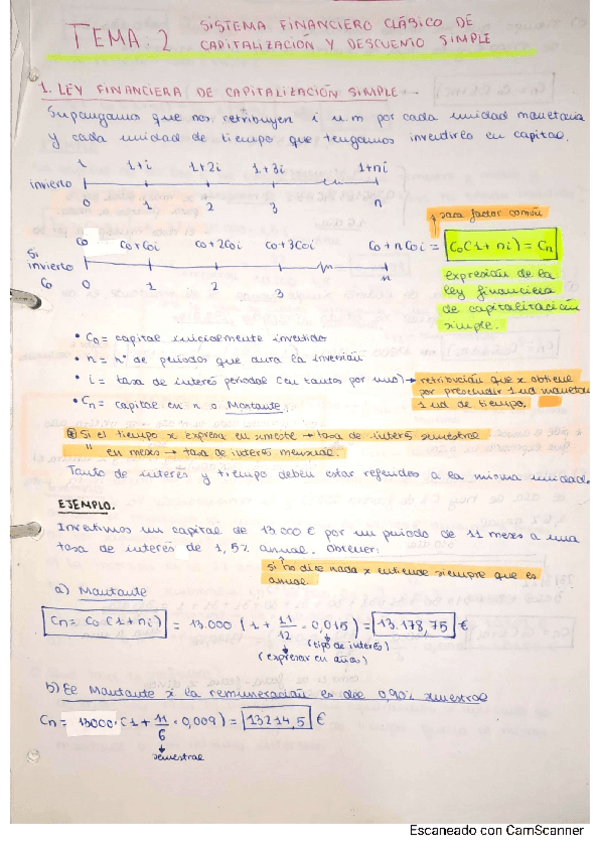 TEMA: 2 SISTEMA FINANCIERO CLÁSICO DE
CAPITALIZACIÓN Y DESCUENTO SIMPLE
1. LEY FINANCIERA DE CAPITALIZACIÓN SIMPLE
Supongamos que nos retribuyen i u.m por cada unidad monetaria
y cada unidad de tiempo que tengamos invertido en capital.
1 1+i 1+2i 1+3i 1+ni
invierto
0 1 2 3 n
para factor común
C0 C0+C0i C0+2C0i C0+3C0i C0+nC0i = C0(1+ni) = Cn
Si
invierto
C0 0 1 2 3 n
expresión de la
ley financiera
de capitalización
simple.
• C0 = capital inicialmente invertido
• n = nº de periodos que dura la inversión
• i = tasa de interés periodal (en tantos por uno) → retribución que x obtiene
por prescindir 1 ud monetaria
1 ud de tiempo.
• Cn = capital en n o Montante.
Si el tiempo x expresa en xmestre → tasa de interés xmestral
" en meses → tasa de interés mensual.
Tanto de interés y tiempo deben estar referidos a la misma unidad.
EJEMPLO.
Invertimos un capital de 13.000 € por un periodo de 11 meses a una
tasa de interés de 1,5% anual. Obtener:
si no dice nada x entiende siempre que es
anual
a) Montante
Cn = C0 (1+ni) = 13.000 (1 + 11/12 · 0,015) = 13.178,75 €
(tipo de interés)
(expresar en años)
b) El Montante si la remuneración es del 0,90% xmestral
Cn = 13000 · (1 + 11/6 · 0,009) = 13214,5 €
xmestral
Escaneado con CamScanner